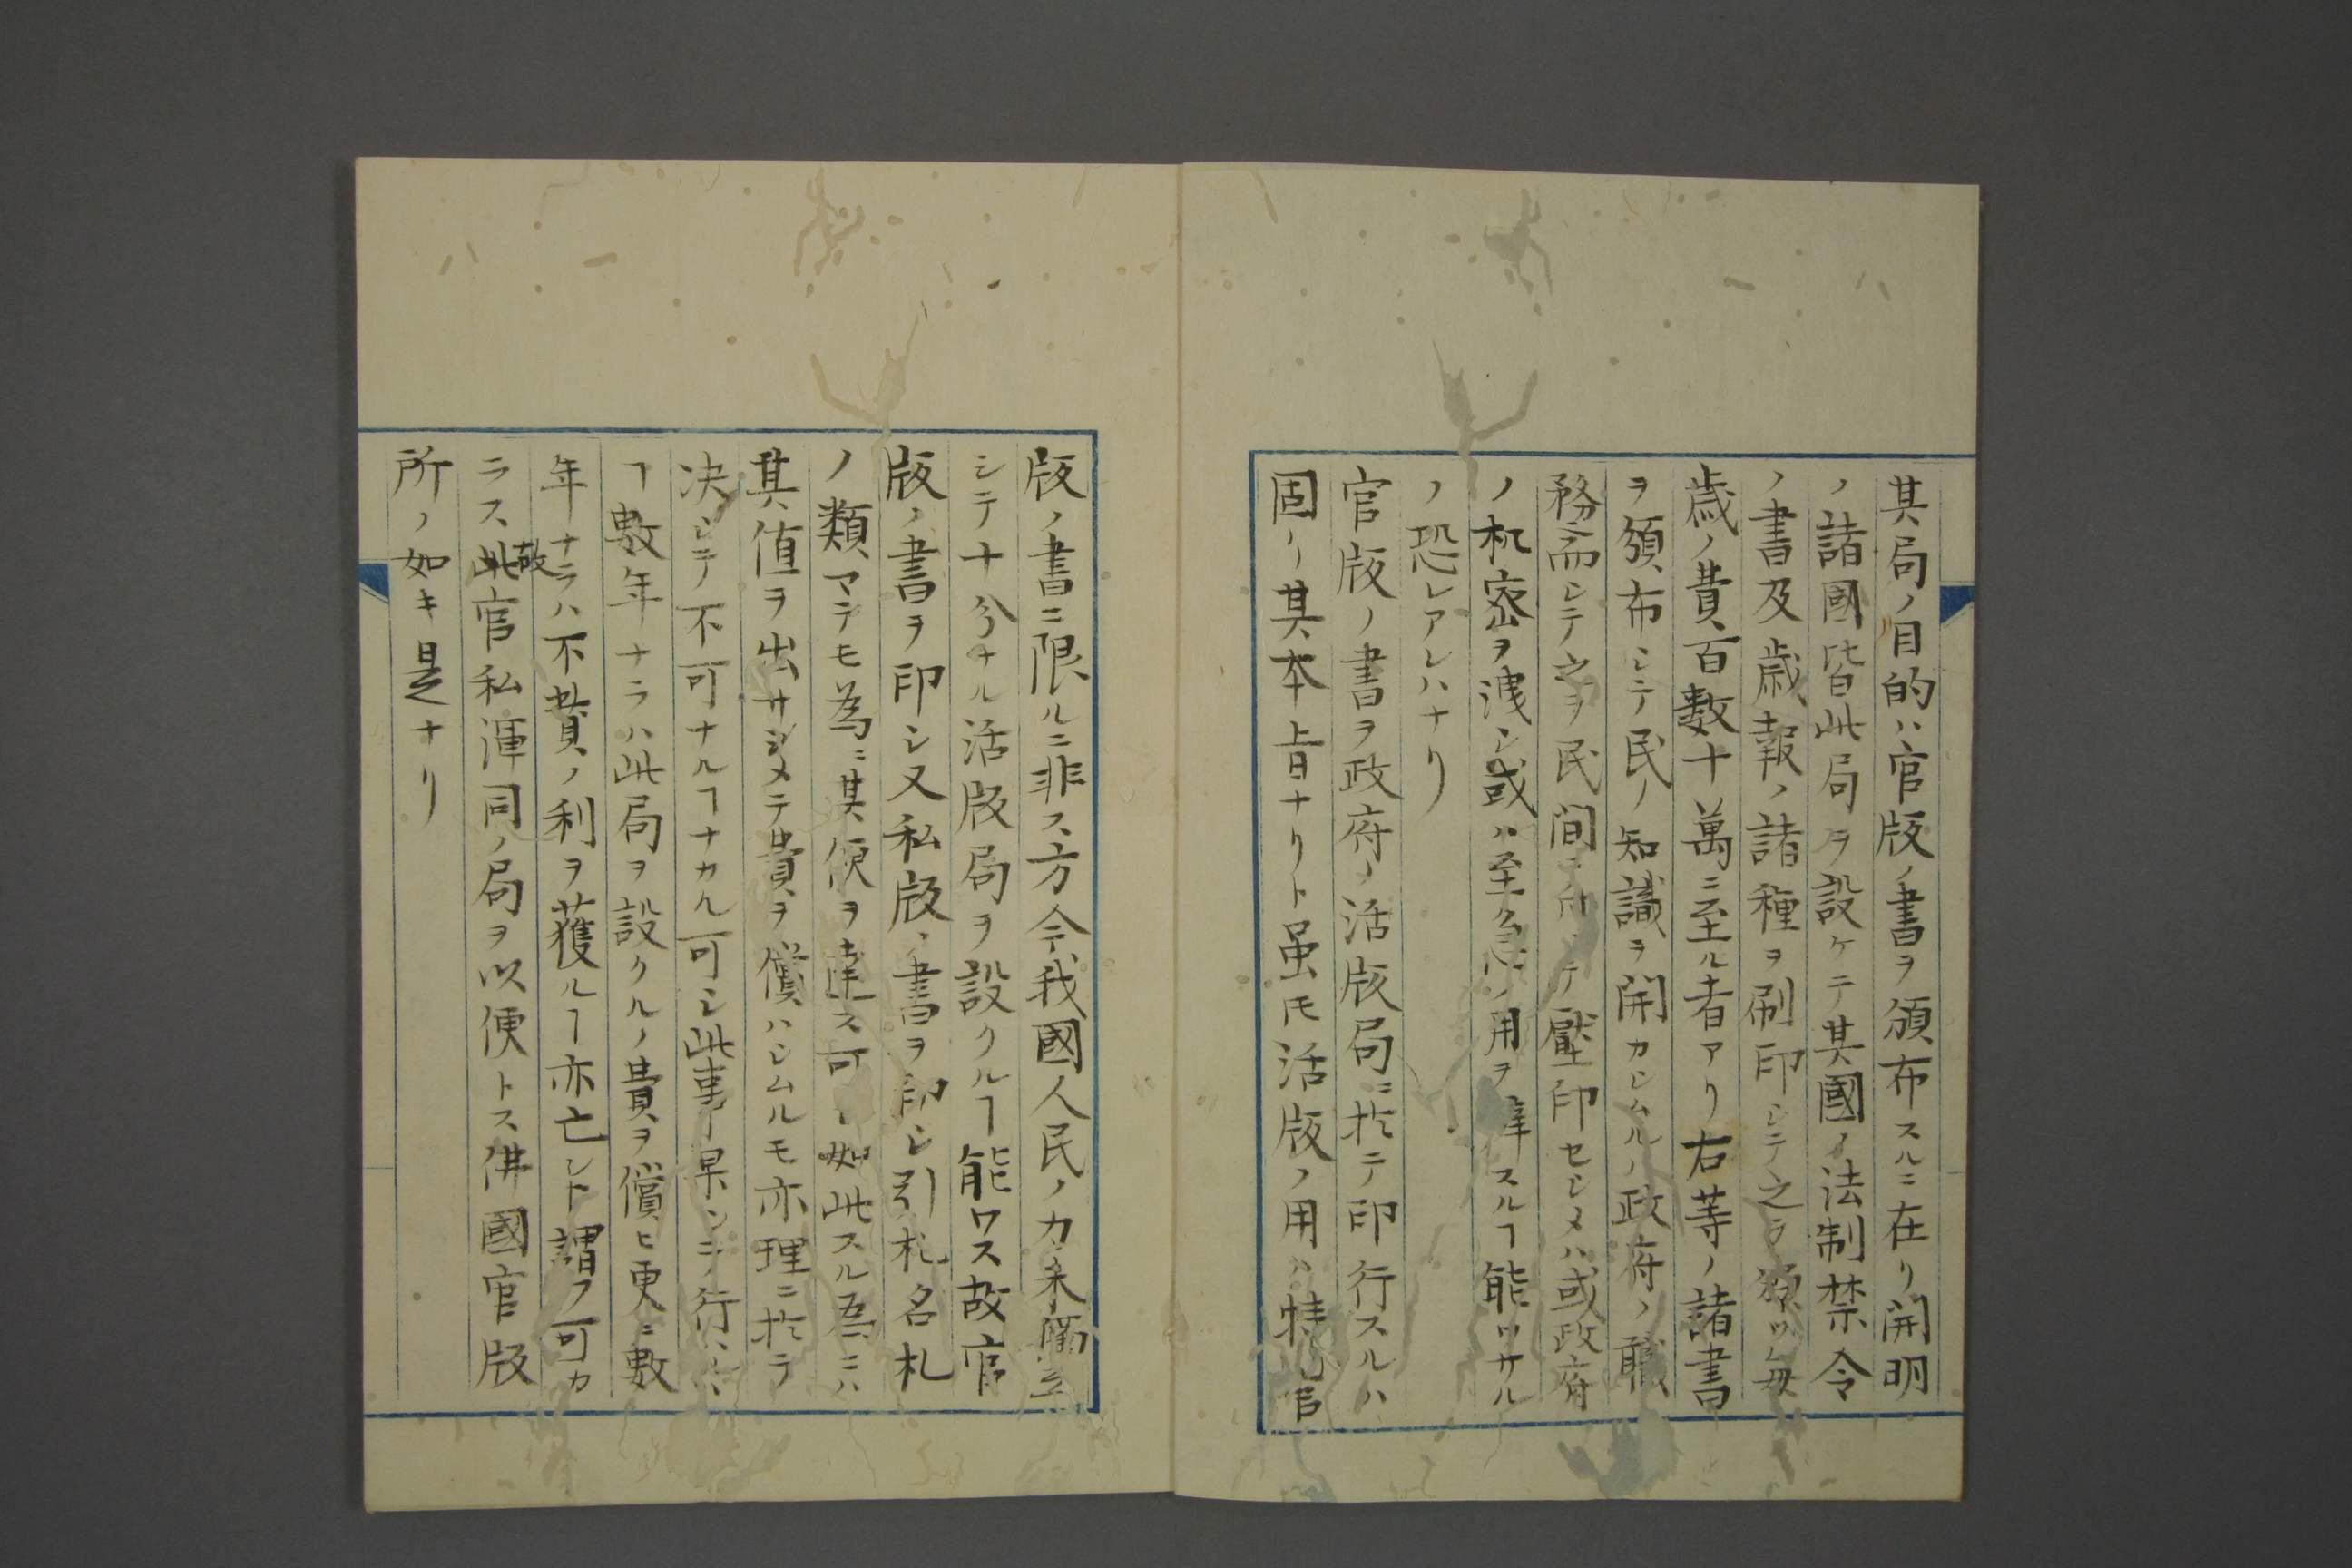 其局ノ目的ハ官版ノ書ヲ頒布スルニ在リ開明
ノ諸國皆此局ヲ設ケテ其國ノ法制禁令
ノ書及歳報ノ諸種ヲ刷印シテ之ヲ頒ツ毎
歳ノ費百数十萬ニ至ル者アリ右等ノ諸書
ヲ頒布シテ民ノ知識ヲ開カシムルノ政府ノ職
務而シテ之ヲ民間ニ印シテ壓印セシメハ或政府
ノ机密ヲ洩シ或ハ至急ノ用ヲ辨スルヿ能ワサル
ノ恐レアレハナリ
官版ノ書ヲ政府ノ活版局ニ於テ印行スルハ
固リ其本旨ナリト虽モ活版ノ用ハ特ニ官
版ノ書ニ限ルニ非ス方今我國人民ノ力未
シテ十分ナル活版局ヲ設クルヿ能ワス故官
版ノ書ヲ印シ又私版ノ書ヲ印シ引札名札
ノ類マテモ為ニ其便ヲ達ス可シ如此スル為ニハ
其値ヲ出サシメテ費ヲ償ハシムルモ亦理ニ於テ
决シテ不可ナルヿナカル可シ此事果シテ行ハ
ヿ數年ナラハ此局ヲ設クルノ費ヲ償ヒ更ニ數
年ナラハ不貲ノ利ヲ獲ルヿ亦亡シト謂フ可カ
ラス故此官私渾同ノ局ヲ以便トス佛國官版
所ノ如キ是ナリ